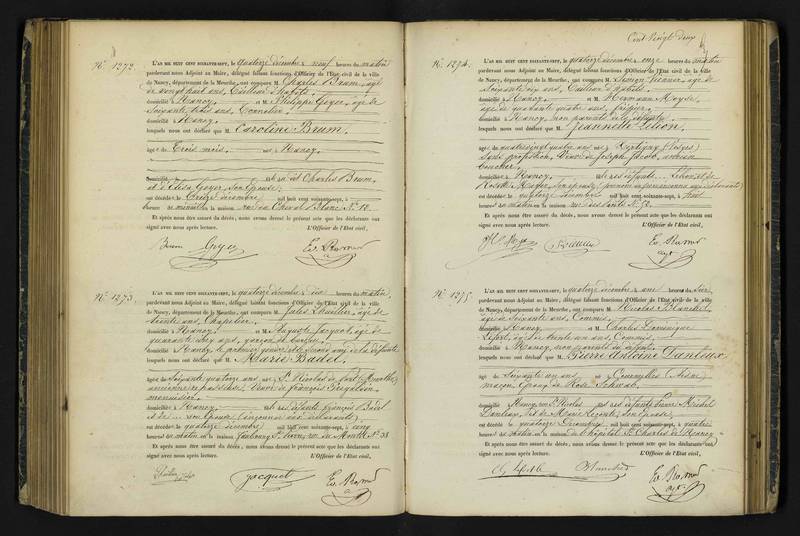 N.° 1272.
L'AN MIL HUIT CENT SOIXANTE-SEPT, le quatorze décembre, neuf heures du matin
pardevant nous Adjoint au Maire, délégué faisant fonctions d'Officier de l'Etat civil de la ville
de Nancy, département de la Meurthe, ont comparu M. Charles Brum, âgé
de vingt huit ans, Tailleur d'habits,
domicilié à Nancy, et M. Philippe Geyer, âgé de
soixante ans,
domicilié à Nancy,
lesquels nous ont déclaré que M. Caroline Brum,
âgée de Trois mois, née à Nancy,
domiciliée à est née de Charles Brum
et d'Elisa Geyer, son épouse,
est décédée le Treize décembre mil huit cent soixante-sept, à
heures de minuit en la maison rue du Cheval Blanc N.° 12.
Et après nous être assuré du décès, nous avons dressé le présent acte que les déclarants ont
signé avec nous après lecture. L'Officier de l'Etat civil,
Brum Geyer
N.° 1273.
L'AN MIL HUIT CENT SOIXANTE-SEPT, le quatorze décembre, dix heures du matin,
pardevant nous Adjoint au Maire, délégué faisant fonctions d'Officier de l'Etat civil de la ville
de Nancy, département de la Meurthe, ont comparu M. Jules âgé de
trente ans, Chapelier,
domicilié à Nancy, et M. Auguste Jacquot, âgé de
quarante ans, garçon de bureau,
domicilié à Nancy, le premier gendre et le second ami de la défunte
lesquels nous ont déclaré que M. Marie Badel,
âgée de soixante quatorze ans née à S.t Nicolas de Port (Meurthe)
Veuve de François
menuisier,
domiciliée à Nancy, est née des défunts François Badel
et de son épouse
est décédée le quatorze décembre mil huit cent soixante-sept, à cinq
heures du matin en la maison faubourg S.t Pierre, rue du N.° 38
Et après nous être assuré du décès, nous avons dressé le présent acte que les déclarants ont
signé avec nous après lecture. L'Officier de l'Etat civil,
Jacquot
Cent Vingt deux
N.° 1274.
L'AN MIL HUIT CENT SOIXANTE-SEPT, le quatorze décembre, onze heures du matin
pardevant nous Adjoint au Maire, délégué faisant fonctions d'Officier de l'Etat civil de la ville
de Nancy, département de la Meurthe, ont comparu M. Simon âgé de
soixante dix ans, Tailleur d'habits,
domicilié à Nancy, et M. Hermann Mayer,
âgé de quarante quatre ans, fripier,
domicilié à Nancy, non parents de la défunte,
lesquels nous ont déclaré que M. Jeannette Léhon,
âgée de quatre vingt quatre ans née à (Vosges)
sans profession, Veuve de Joseph Jacob,
boucher,
domiciliée à Nancy, est née des défunts Léhon et de
Rosette Mayer, son épouse,
est décédée le quatorze décembre mil huit cent soixante-sept, à huit
heures du matin en la maison N.° 52.
Et après nous être assuré du décès, nous avons dressé le présent acte que les déclarants ont
signé avec nous après lecture. L'Officier de l'Etat civil,
N.° 1275.
L'AN MIL HUIT CENT SOIXANTE-SEPT, le quatorze décembre, une heure du soir,
pardevant nous Adjoint au Maire, délégué faisant fonctions d'Officier de l'Etat civil de la ville
de Nancy, département de la Meurthe, ont comparu M. Nicolas Blanchet,
âgé de soixante ans, Commis,
domicilié à Nancy, et M. Charles Dominique
âgé de trente un ans, Commis,
domicilié à Nancy, non parents du défunt,
lesquels nous ont déclaré que M. Pierre Antoine Danleux,
âgé de soixante un ans né à (Aisne)
maçon, Epoux de Rose Schwab,
domicilié à Nancy, rue S.t Nicolas, est né des défunts Pierre Michel
Danleux, et de Marie son épouse,
est décédé le quatorze Décembre, mil huit cent soixante-sept, à quatre
heures du matin en la maison de l'hôpital S.t Charles de Nancy
Et après nous être assuré du décès, nous avons dressé le présent acte que les déclarants ont
signé avec nous après lecture. L'Officier de l'Etat civil,